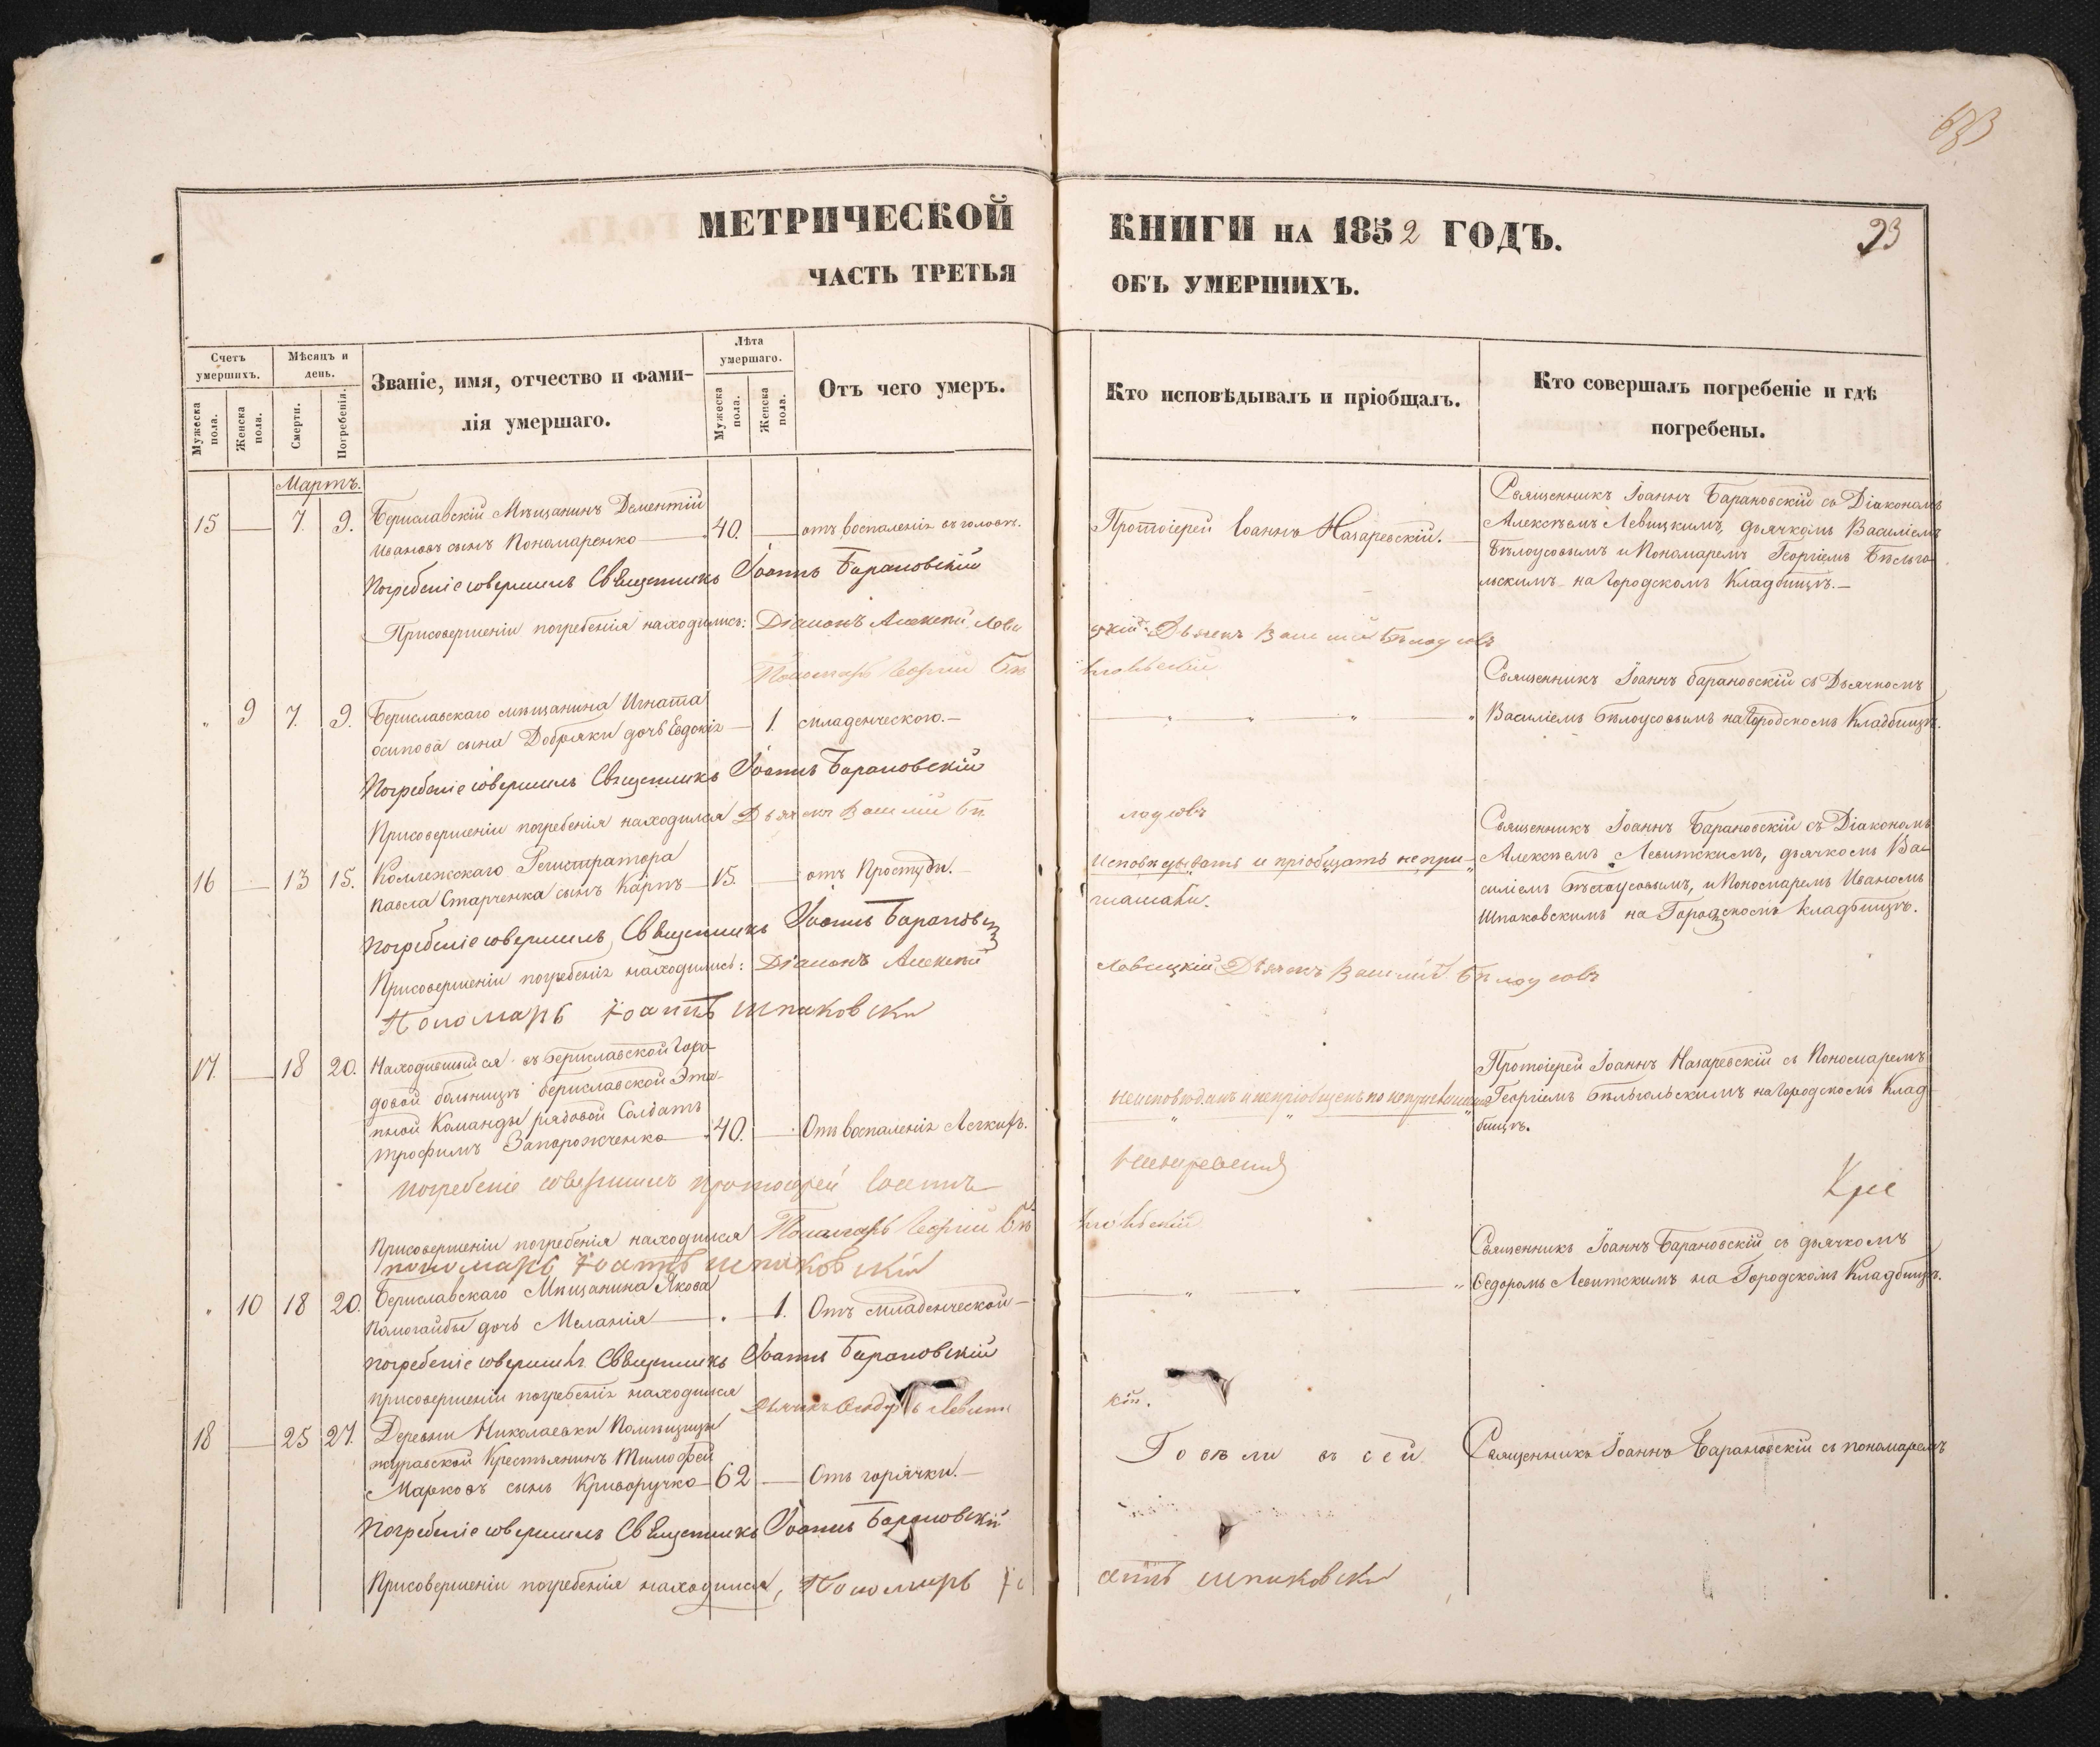 633
МЕТРИЧЕСКОЙ КНИГИ НА 1852 ГОДЪ.
23
ЧАСТЬ ТРЕТЬЯ ОБЪ УМЕРШИХЪ.
Счетъ умершихъ.
Мужеска пола.
Женска пола.
Мѣсяцъ и день.
Смерти.
Погребенія.
Званіе, имя, отчество и фами-
лія умершаго.
Лѣта умершаго.
Мужеска пола.
Женска пола.
Отъ чего умеръ.
Кто исповѣдывалъ и пріобщалъ.
Кто совершалъ погребеніе и гдѣ
погребены.
Мартъ.
15 — 7. 9. Бериславскій Мѣщанинъ Дементій
Ивановъ сынъ Пономаренко — 40. — отъ воспаленія въ головѣ.
Протоіерей Іоаннъ Назаревскій. —
Священникъ Іоаннъ Барановскій съ Діакономъ
Алексѣемъ Левицкимъ, дьячкомъ Василіемъ
Бѣлоусовымъ и Пономаремъ Георгіемъ Бѣлого
льскимъ на Городскомъ Кладбищѣ. —
Погребеніе совершилъ Священникъ Іоаннъ Барановскій
Присовершеніи погребенія находились: Діаконъ Алексѣй Леви
цкій Дьячекъ Василій Бѣлоусовъ
Пономарь Георгій Бѣ
" 9 7. 9. Бериславскаго мѣщанина Игната
осипова сына Добряки дочь Евдокія — 1. младенческого. —
" " " "
Священникъ Іоаннъ барановскій съ Дьячкомъ
Василіемъ Бѣлоусовымъ на Городскомъ Кладбищѣ.
Погребеніе совершилъ Священникъ Іоаннъ Барановскій
Присовершеніи погребенія находился Дьячекъ Василій Бѣ
лоусовъ
16 — 13 15. Коллежскаго Регистратора
Павла Старченка сынъ Карпъ — 15. — отъ Простуды. —
Исповѣдывать и пріобщать не при-
глашали.
Священникъ Іоаннъ Барановскій съ Діакономъ
Алексѣемъ Левитскимъ, дьячкомъ Ва-
силіемъ бѣлоусовымъ, и Пономаремъ Иваномъ
Шпаковскимъ на Городскомъ кладбищѣ.
Погребеніе совершилъ Священникъ Іоаннъ Барановскій
Присовершеніи погребенія находились: Діаконъ Алексѣй
Левицкій Дьячекъ Василій Бѣлоусовъ
Пономарь Іоаннъ Шпаковски
17. — 18 20. Находившійся въ Бериславской Горо-
довой больницѣ бериславской Эта-
пной Команды рядовой Солдатъ
Трофимъ Запорожченко — 40. — Отъ воспаленія Легкихъ.
Протоіерей Іоаннъ Назаревскій съ Пономаремъ
Георгіемъ Бѣлогольскимъ на Городскомъ Клад
бищѣ.
Погребеніе совершилъ протоіерей Іоаннъ
Назаревскій
Присовершеніи погребенія находился Пономарь Георгій Бѣ
пономарь Іоаннъ Шпаковскій
" 10 18 20. Бериславскаго Мѣщанина Якова
Помогайбы дочь Меланія — 1. Отъ младенческой —
" " "
Священникъ Іоаннъ Барановскій съ дьячкомъ
Ѳедоромъ Левитскимъ на Городскомъ Кладбищѣ.
Погребеніе совершилъ Священникъ Іоаннъ Барановскій
присовершеніи погребенія находился
кій.
18 — 25 27. Деревни Николаевки Помѣщицы
журавской Крестьянинъ Тимофей
Марковъ сынъ Криворучко — 62 — Отъ горячки. —
Говѣли въ сей
Священникъ Іоаннъ Барановскій съ пономаремъ
Погребеніе совершилъ Священникъ Іоаннъ Барановскій
Присовершеніи погребенія находился, Пономарь Іо
аннъ Шпаковски